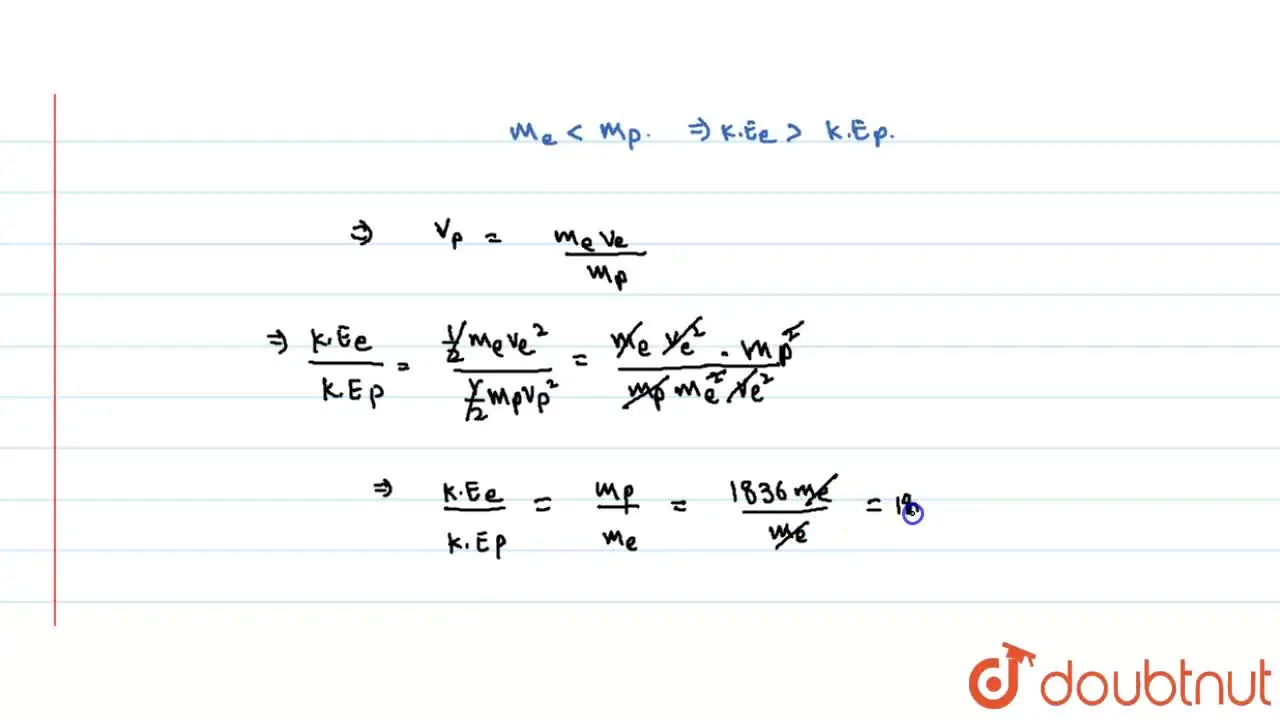 me < mp. ⇒ K.Ee > K.Ep.
⇒ Vp = meve/mp
⇒ K.Ee/K.Ep = ½meve²/½mpvp² = me ve² · mp²/mp me² ve²
⇒ K.Ee/K.Ep = mp/me = 1836me/me = 18
doubtnut